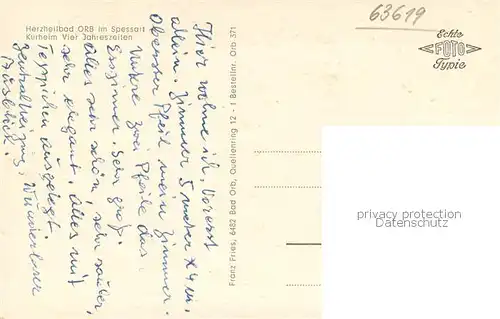 63619
Echte
FOTO
Typie
Herzheilbad ORB im Spessart
Kurheim Vier Jahreszeiten
Hier wohne ich. Vorerst
allein. Zimmer 5 meter x 4 m,
Oberster Pfeil mein Zimmer.
Untere zwei Pfeile das
Esszimmer. Sehr groß.
Alles sehr schön, sehr sauber,
sehr elegant. Alles mit
Teppichen ausgelegt.
Zentralheizung, Wunderbarer
Ausblick.
Franz Fries, 6482 Bad Orb, Quellenring 12 - 1 Bestellnr. Orb 371
privacy protection